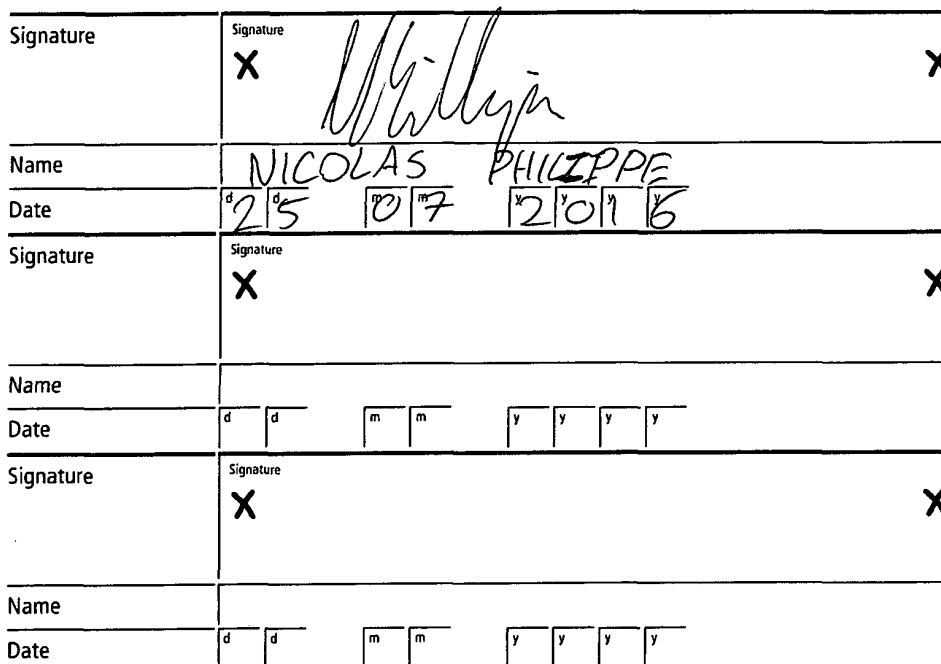 Signature
Signature
X X
Name NICOLAS PHILIPPE
Date d2 d5 m0 m7 y2 y0 y1 y6
Signature
Signature
X X
Name
Date d d m m y y y y
Signature
Signature
X X
Name
Date d d m m y y y y